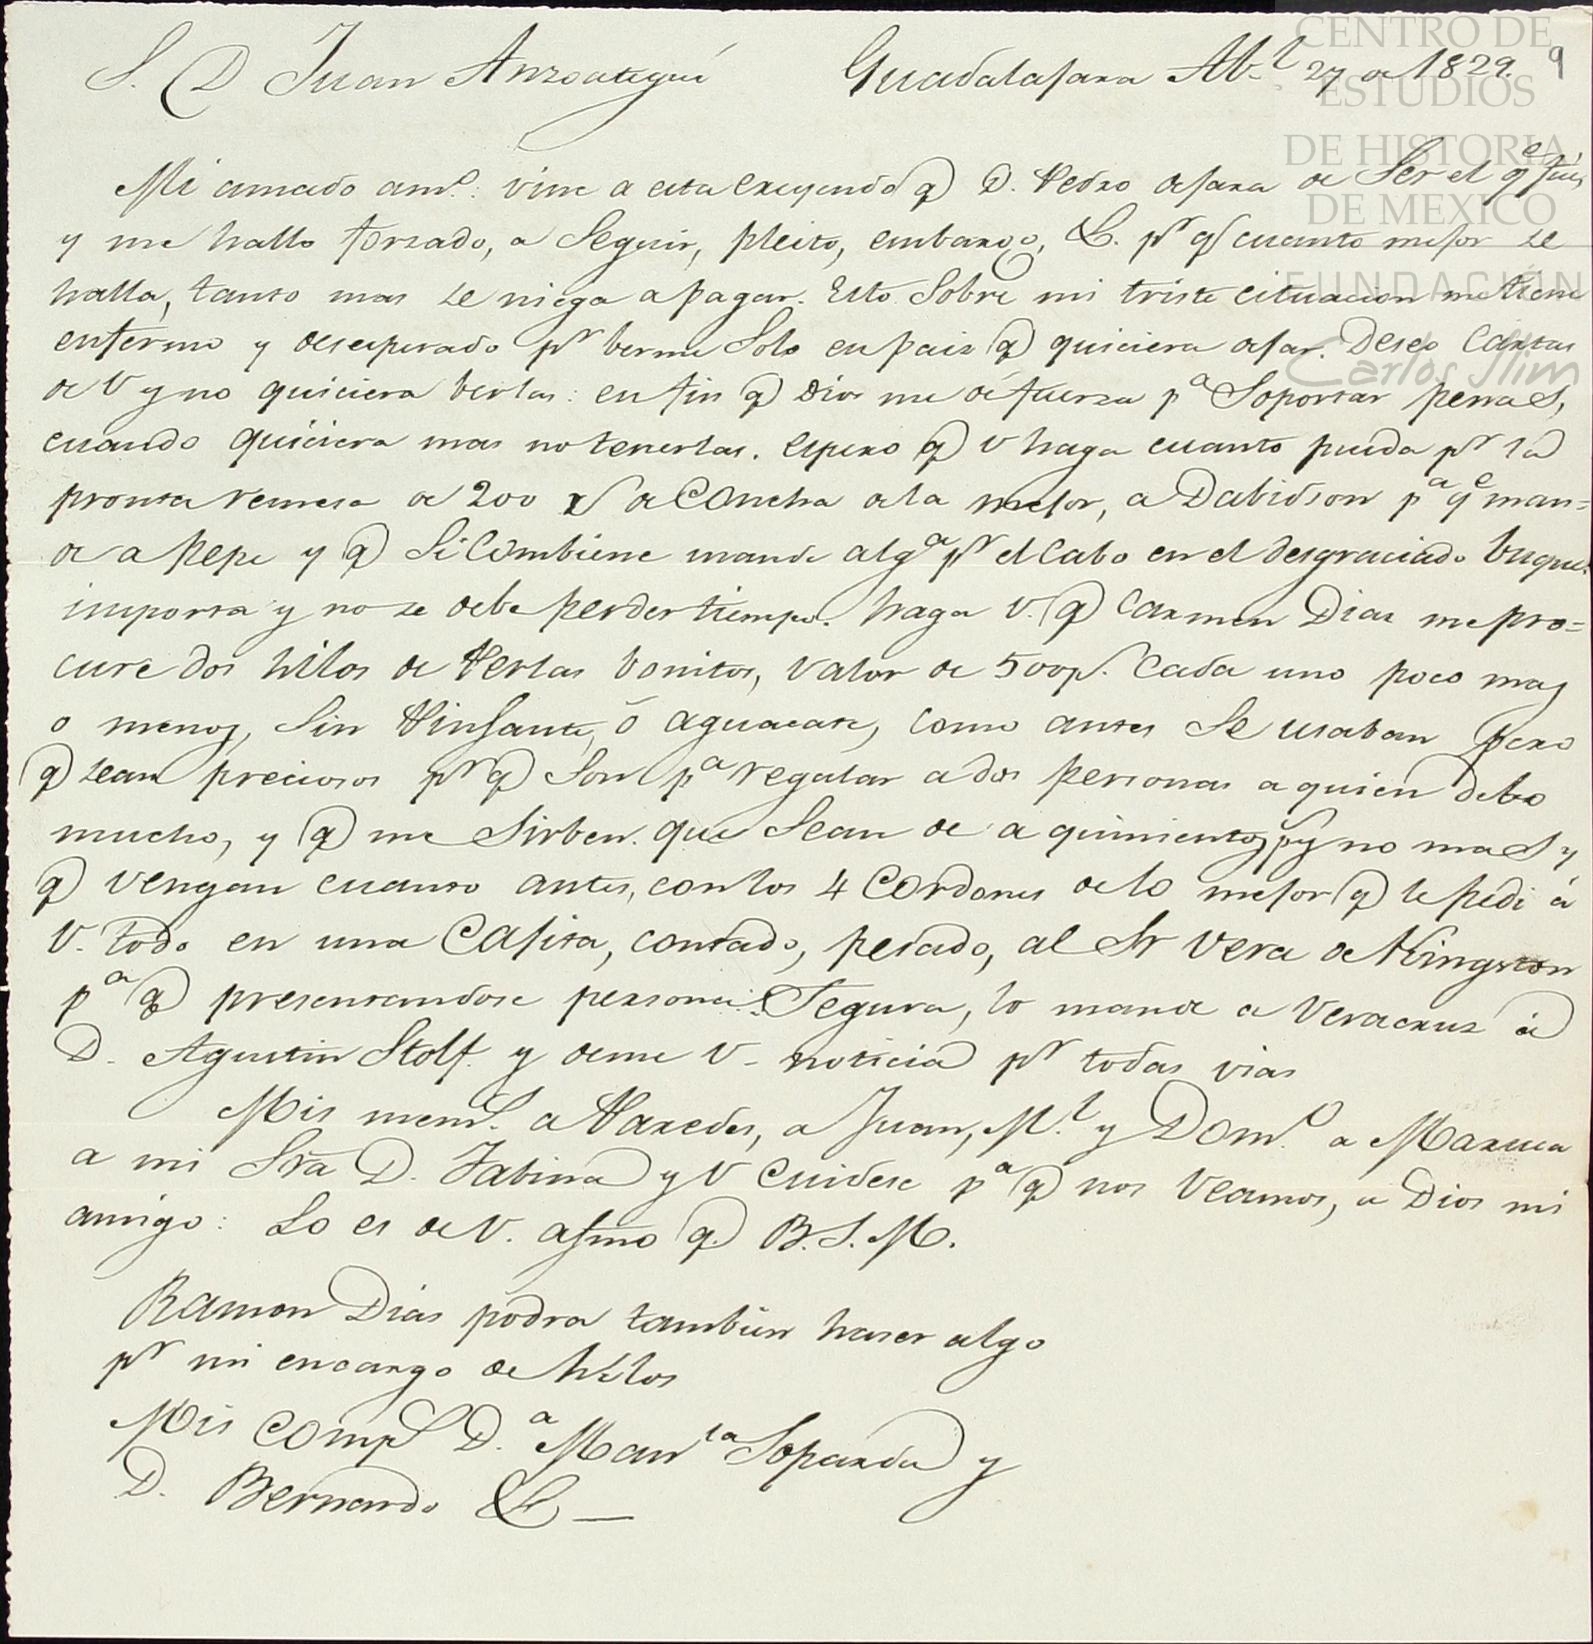 S. D Juan Anzoategui Guadalajara Ab.l 27 de 1829. 9
CENTRO DE
ESTUDIOS
DE HISTORIA
DE MEXICO
FUNDACIÓN
Carlos Slim
Mi amado am.o: vine a esta creyendo q D. Pedro dejara de Ser el q.e fui,
y me hallo forzado, a Seguir, pleito, embargo, &. p.r q cuanto mejor se
halla, tanto mas se niega a pagar. Esto Sobre mi triste cituacion me tiene
enfermo y deseperado p.r berme Solo en pais q quiciera dejar. Deseo Cartas
de V y no quiciera berlas: en fin q Dios me dé fuerza p.a Soportar penas,
cuando quiciera mas no tenerlas. espero q v haga cuanto pueda p.r la
pronta remesa de 200 de Concha de la mejor, a Dabidson p.a q.e man=
de a Pepe y q Si Combiene mande alg.a p.r el Cabo en el desgraciado buque.
importa y no se debe perder tiempo. haga V. q Carmen Dias me pro=
cure dos hilos de Perlas bonitos, valor de 500p.s Cada uno poco mas
o menos, Sin Pinjante, ó aguacate, como antes Se usaban pero
q sean preciosos p.r q Son p.a regalar a dos personas a quien debo
mucho, y q me Sirben. que Sean de a quinientos p.s y no mas y
q vengan cuanto antes, con los 4 Cordones de lo mejor q le pedi á
V. todo en una Cajita, contado, pesado, al Sr Vera de Kingston
p.a q presentandose persona Segura, lo mande a Veracruz á
D. Agustin Stolf. y deme V- noticia p.r todas vias
Mis mem.s a Paredes, a Juan, M.l y Dom.o a Maruca
a mi Sra D. Fabina y V Cuidese p.a q nos Veamos, a Dios mi
amigo: Lo es de V. afmo q. B. S. M.
Ramon Dias podra tambien haser algo
p.r mi encargo de hilos
Mis Comp.s D.a Man.la Soparda y
D. Bernardo & —